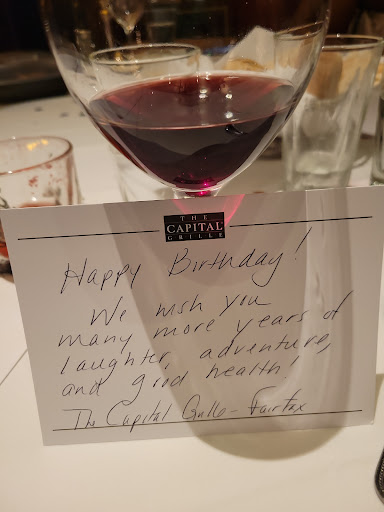 THE
CAPITAL
GRILLE
Happy Birthday!
We wish you
many more years of
laughter, adventure,
and good health!
The Capital Grille - Fairfax